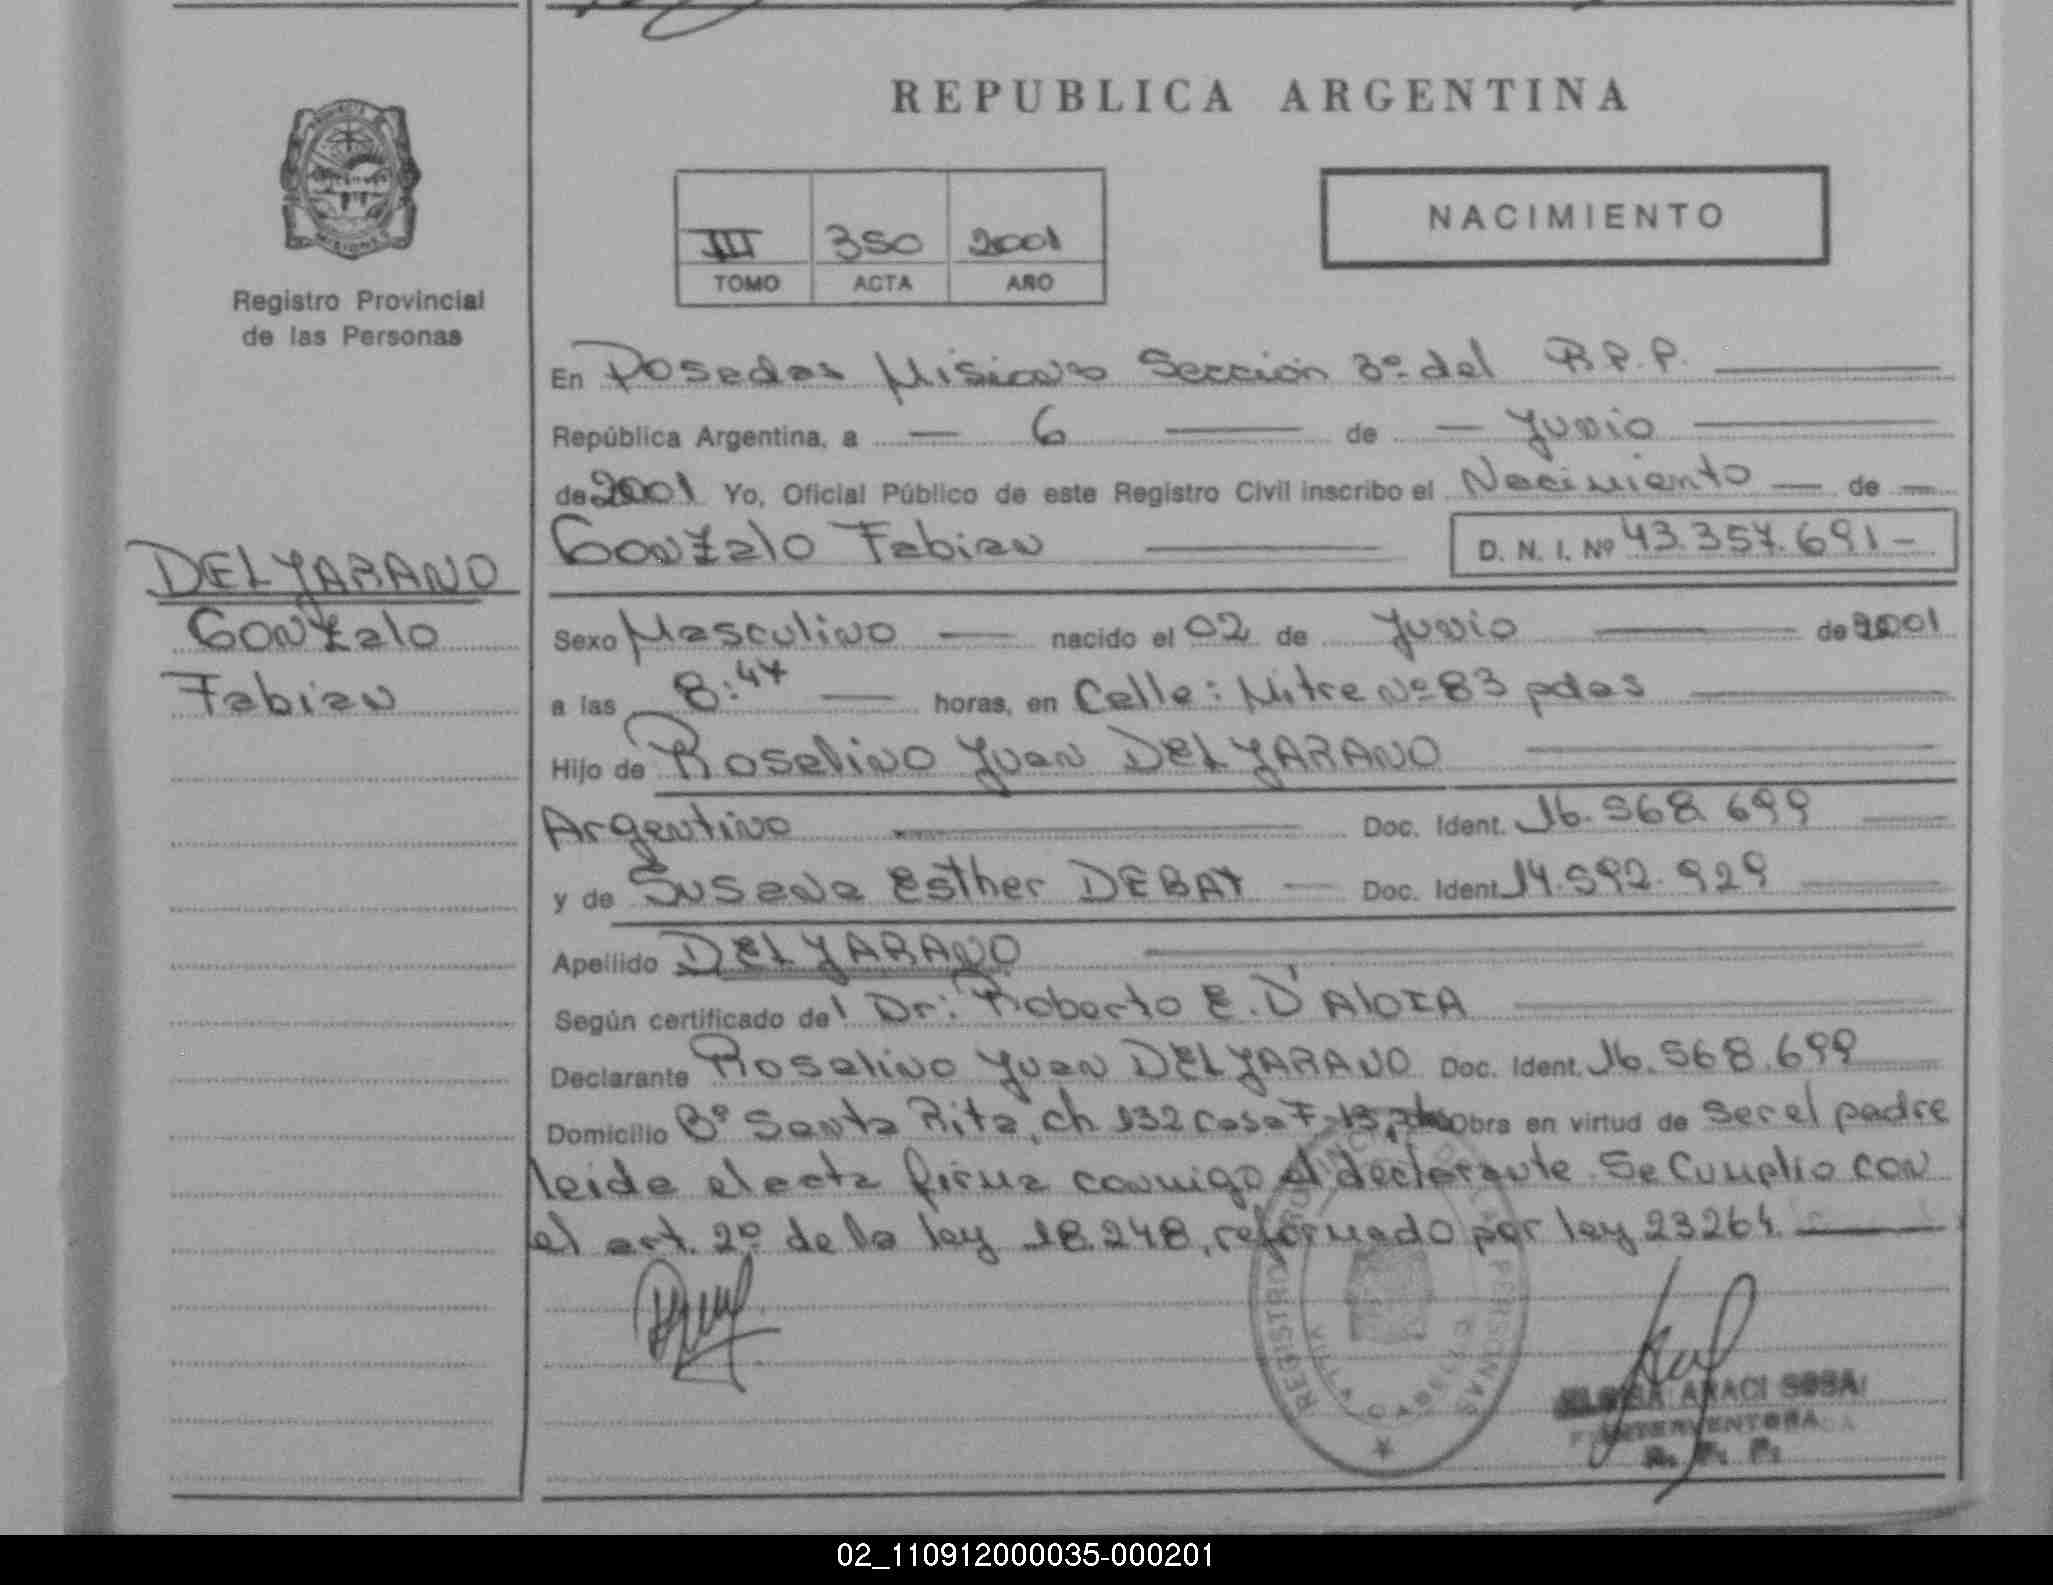 REPUBLICA ARGENTINA
NACIMIENTO
III 350 2001
TOMO ACTA AÑO
MISIONES
Registro Provincial
de las Personas
En Posadas Misiones Sección 3º del R.P.P.
República Argentina, a 6 de Junio
de 2001 Yo, Oficial Público de este Registro Civil inscribo el Nacimiento de
Gonzalo Fabian D. N. I. Nº 43.357.691-
DELJARANO
Gonzalo
Fabian
Sexo Masculino nacido el 02 de Junio de 2001
a las 8:47 horas, en Calle: Mitre Nº 83 pdas
Hijo de Roselino Juan DELJARANO
Argentino Doc. Ident. 16.568.699
y de Susana Esther DEBAT Doc. Ident. 14.592.929
Apellido DELJARANO
Según certificado del Dr: Roberto E. D'AloIA
Declarante Roselino Juan DELJARANO Doc. Ident. 16.568.699
Domicilio Bº Santa Rita, ch 132 casa Obra en virtud de ser el padre
leida el acta firma conmigo el declarante. Se Cumplio con
el art. 2º de la ley 18.248, reformado por ley 23264.
REGISTRO PERSONAS
ARACI SOSA
INTERVENTORA
R. P. P.
02_110912000035-000201